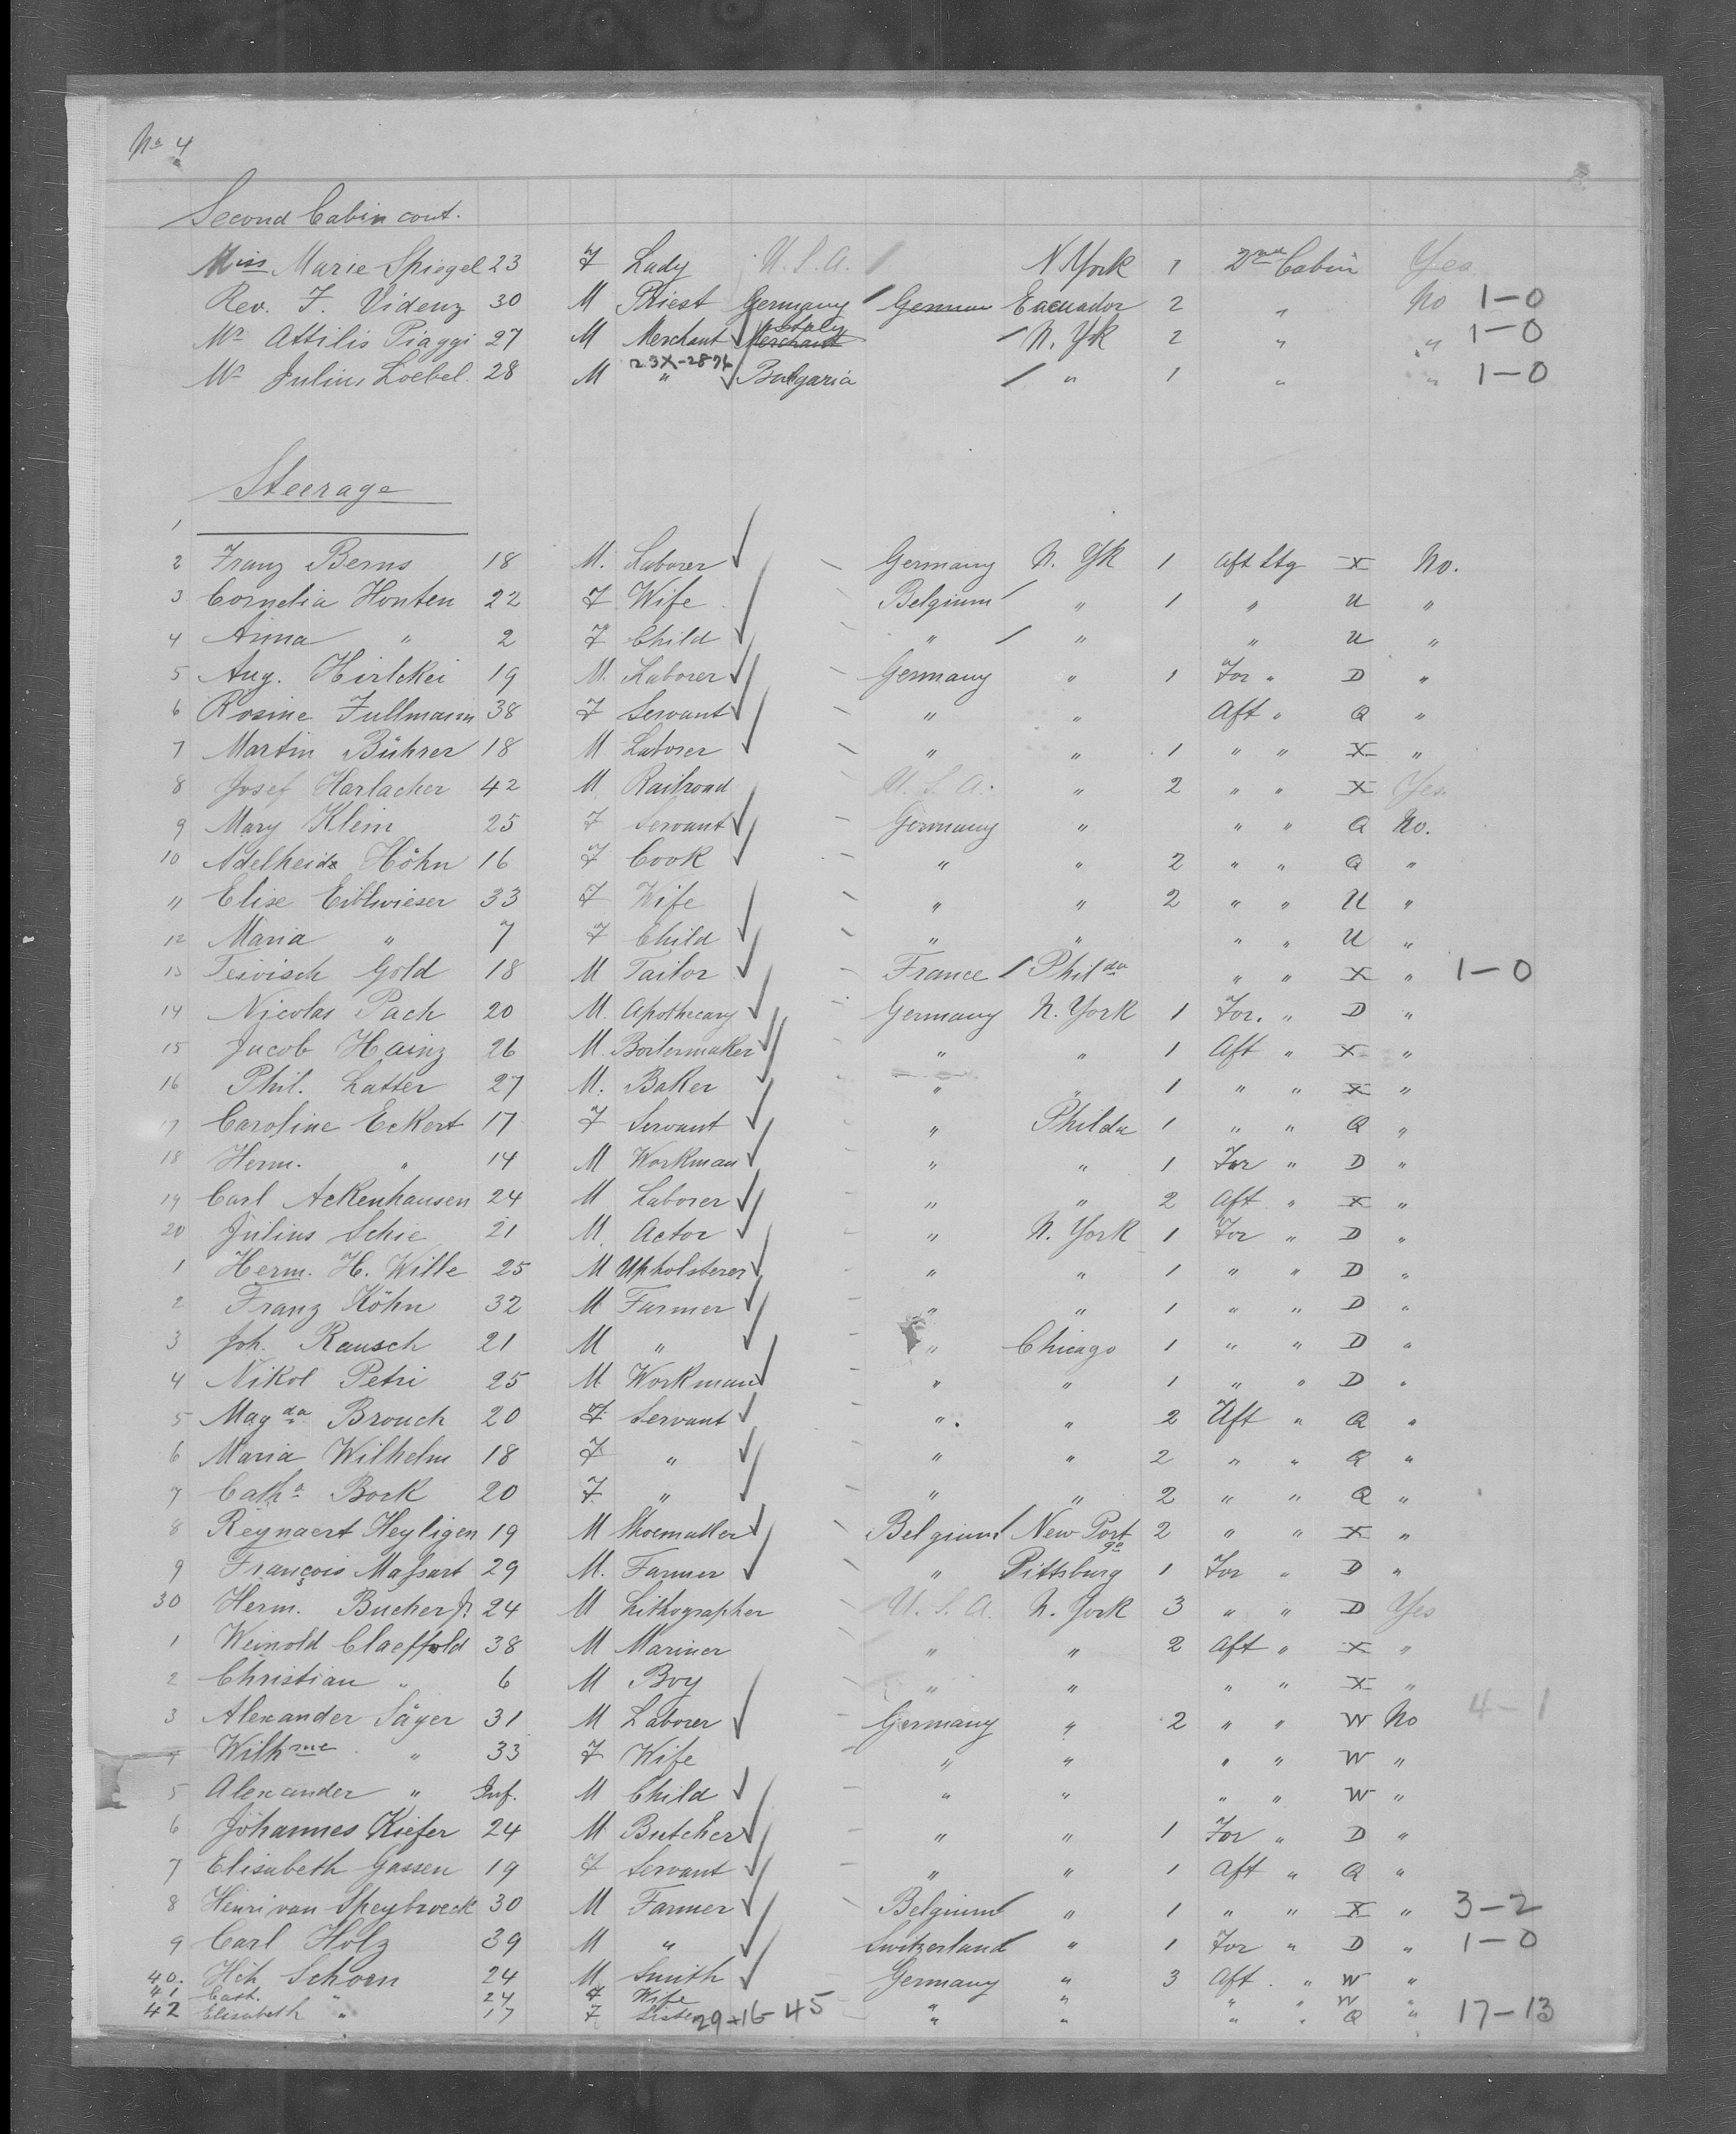 No 4
Second Cabin cont.
Miss Marie Spiegel 23 F Lady U.S.A. / N York 1 2nd Cabin Yes
Rev. F. Videnz 30 M Priest Germany / German Eacuador 2 " No 1-0
Mr Attilis Piaggi 27 M Merchant Italy Merchant / N. Yk 2 " " 1-0
Mr Julius Loebel 28 M " 23X-2874 Bulgaria / " 1 " " 1-0
Steerage
1
2 Franz Berns 18 M. Laborer Germany N. Yk 1 Aft Stg X No.
3 Cornelia Honten 22 F Wife Belgium / " 1 " U "
4 Anna " 2 F Child " / " " U "
5 Aug. Hirlekei 19 M. Laborer Germany " 1 For " D "
6 Rosine Fullmann 38 F Servant " " Aft " Q "
7 Martin Bührer 18 M Laborer " " 1 " " X "
8 Josef Harlacher 42 M Railroad U.S.A. " 2 " " X Yes.
9 Mary Klein 25 F Servant Germany " " " Q No.
10 Adelheid Höhn 16 F Cook " " 2 " " Q "
" Elise Eiblwieser 33 F Wife " " 2 " " U "
12 Maria " 7 F Child " " " " U "
13 Gold 18 M Tailor France / Philda " " X " 1-0
14 Nicolas Pach 20 M. Apothecary Germany N. York 1 For. " D "
15 Jacob Hainz 26 M. Boilermaker " " 1 Aft " X "
16 Phil. Latter 27 M. Baker " " 1 " " X "
17 Caroline Eckert 17 F Servant " Philda 1 " " Q "
18 Herm. " 14 M Workman " " 1 For " D "
19 Carl Ackenhausen 24 M Laborer " " 2 Aft " X "
20 Julius Schie 21 M. Actor " N. York 1 For " D "
1 Herm. H. Wille 25 M Upholsterer " " 1 " " D "
2 Franz Köhn 32 M Farmer " " 1 " " D "
3 Joh. Rausch 21 M " " Chicago 1 " " D "
4 Nikol Petri 25 M. Workman " " 1 " " D "
5 Magda Brouch 20 F Servant " " 2 Aft " Q "
6 Maria Wilhelm 18 F " " " 2 " " Q "
7 Catha Bock 20 F " " " 2 " " Q "
8 Reynaert Heyligen 19 M Shoemaker Belgium / New Port 2 " " X "
9 François Massart 29 M. Farmer " Pittsburg 1 For " D "
30 Herm. Bucher Jr. 24 M Lithographer U.S.A. N. York 3 " " D Yes
1 Weinold Claeffold 38 M Mariner " " 2 Aft " X "
2 Christian " 6 M Boy " " " " X "
3 Alexander Säger 31 M Laborer Germany " 2 " " W No 4-1
4 Wilhme " 33 F Wife " " " " W "
5 Alexander " Inf. M Child " " " " W "
6 Johannes Kiefer 24 M Butcher " " 1 For " D "
7 Elisabeth Gassen 19 F Servant " " 1 Aft " Q "
8 Henri van Speybroeck 30 M Farmer Belgium / " 1 " " X " 3-2
9 Carl Holz 39 M " Switzerland / " 1 For " D " 1-0
40. Hch Schoen 24 M Smith Germany " 3 Aft. " W "
41 Cath. " 24 F Wife " " " " W "
42 Elisabeth " 17 F Sister 29-16-45 " " " " Q " 17-13